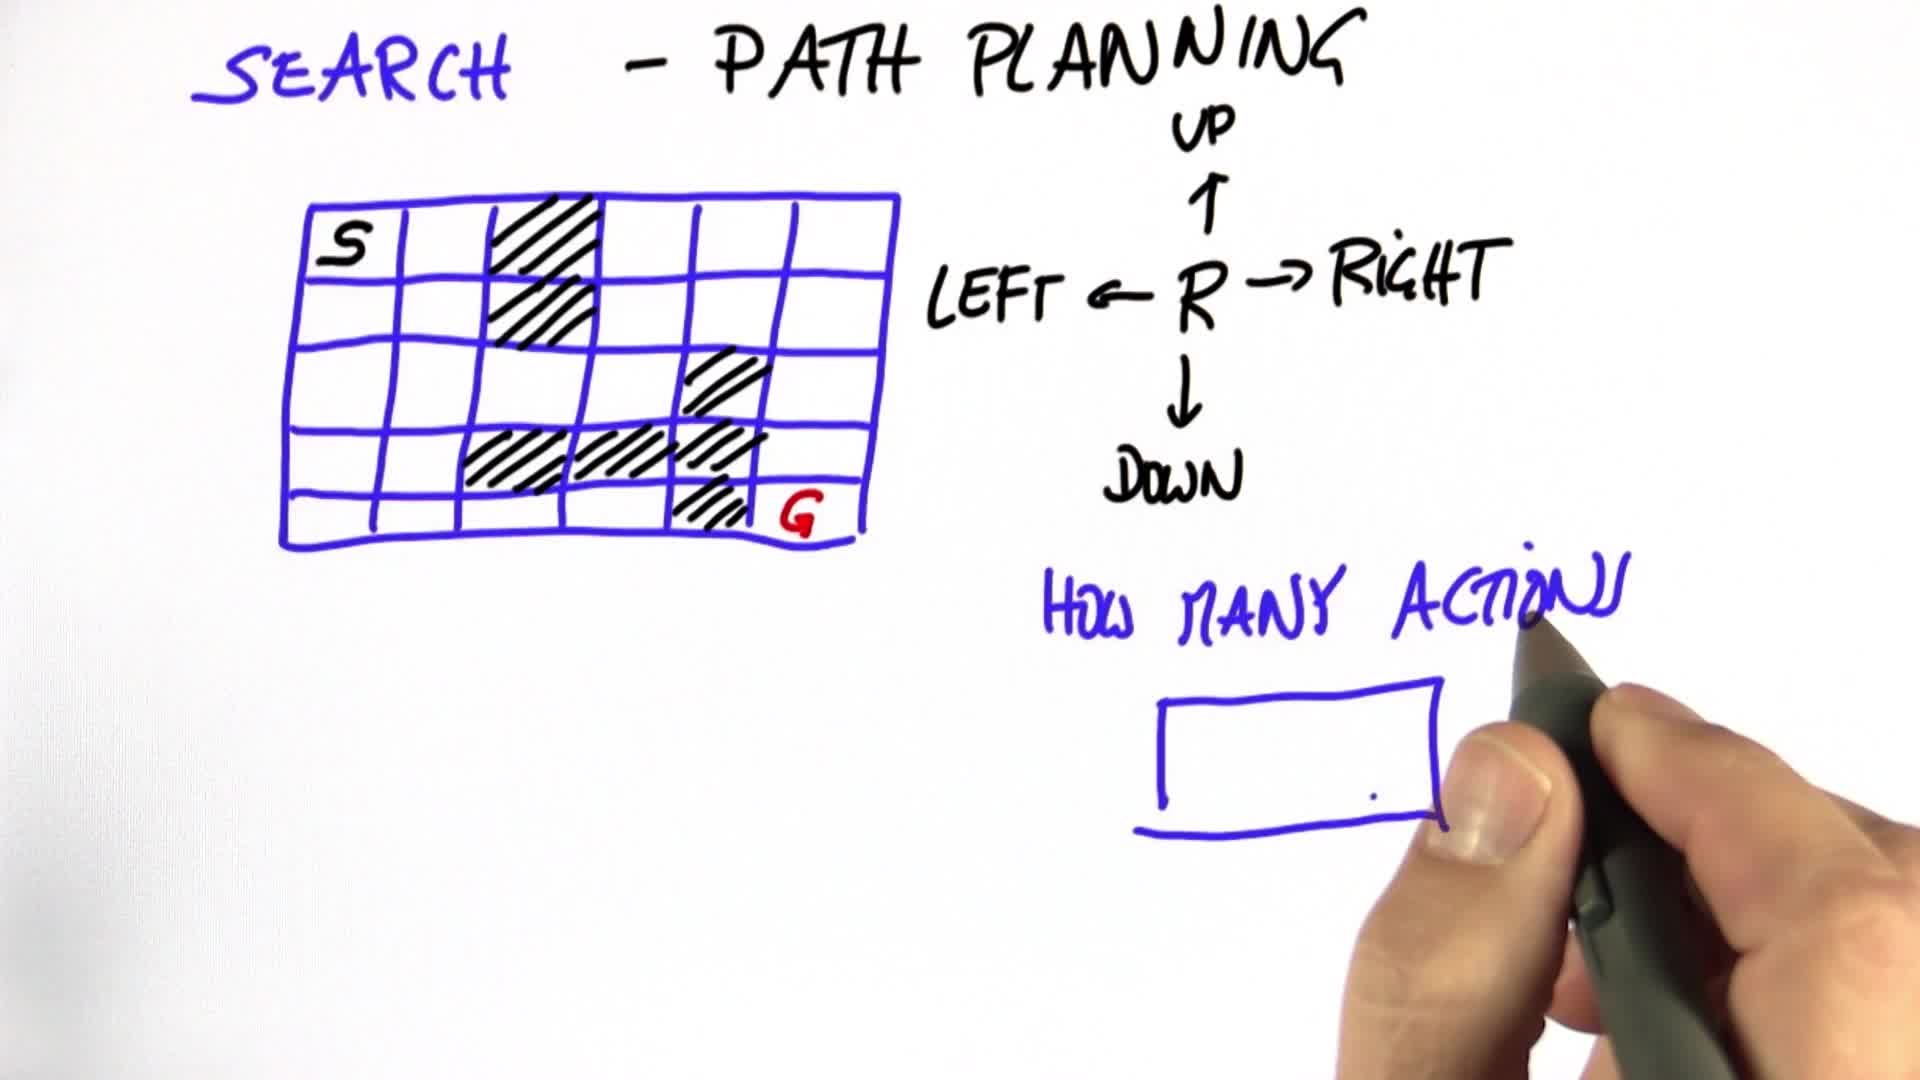 SEARCH - PATH PLANNING
S
G
UP
LEFT ← R → RIGHT
DOWN
HOW MANY ACTIONS